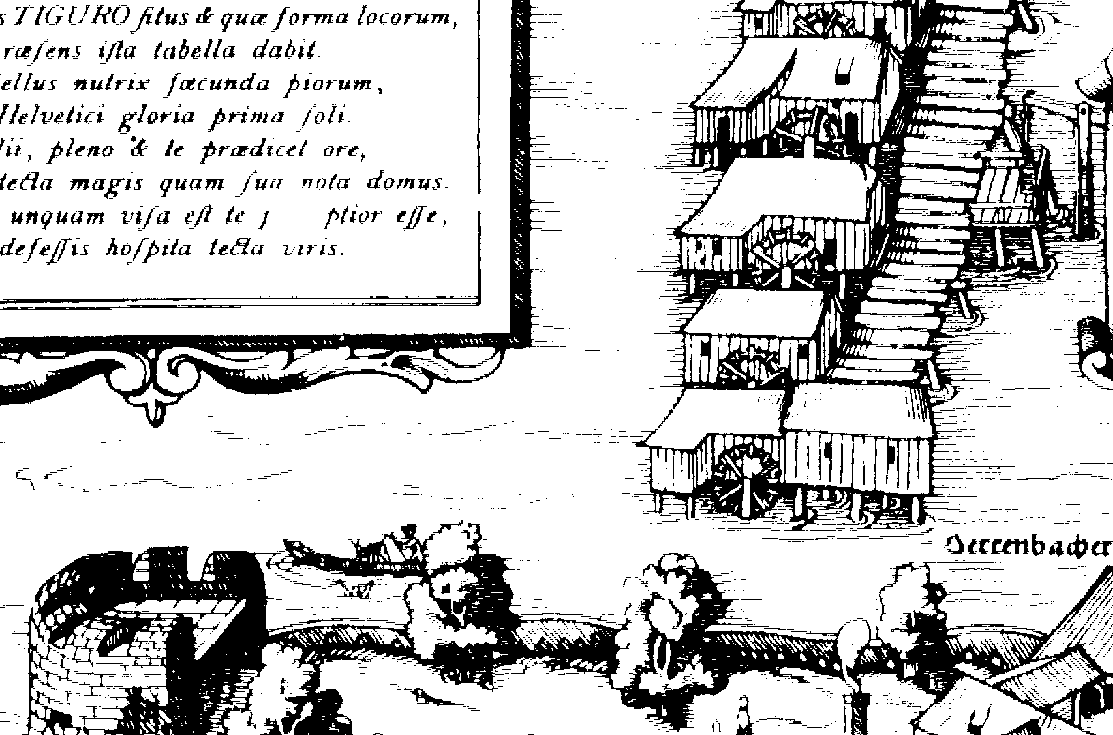 TIGURO ſitus & quæ forma locorum,
ræſens iſta tabella dabit.
ellus nutrix fæcunda piorum,
Helvetici gloria prima ſoli.
lii, pleno & te prædicet ore,
tecta magis quam ſua nota domus.
unquam viſa eſt te ptior eſſe,
defeſſis hoſpita tecta viris.